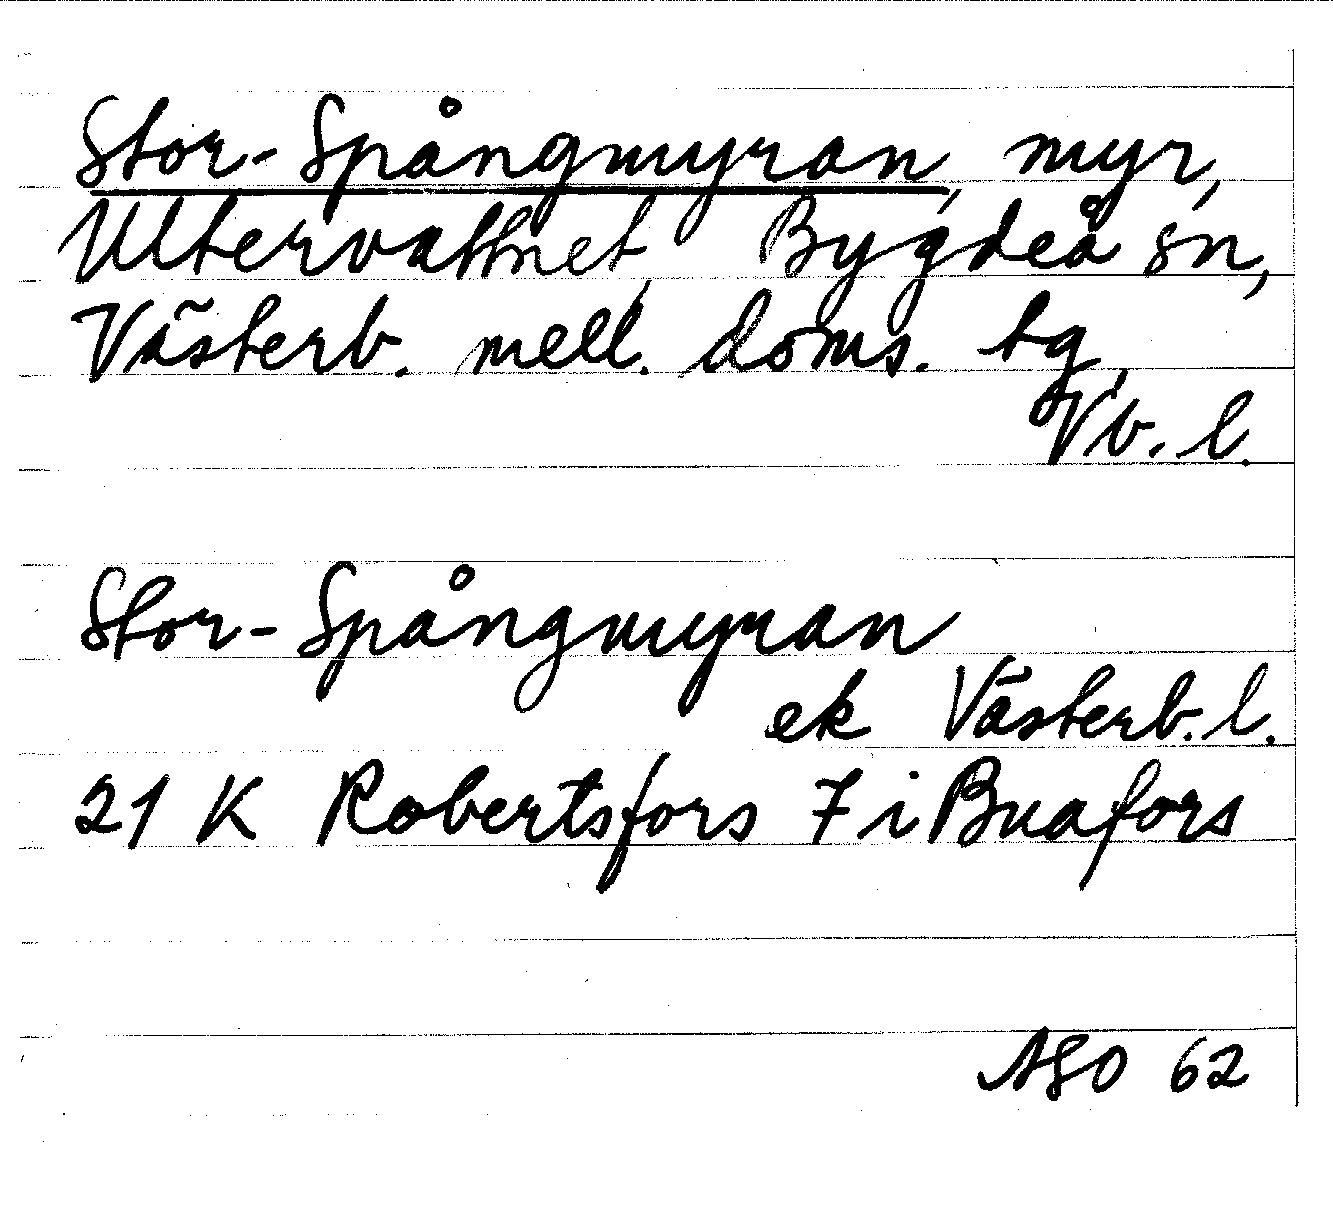 Stor-Spångmyran, myr,
Ultervattnet, Bygdeå sn,
Västerb. mell. doms. tg,
Vb. l.
Stor-Spångmyran
ek Västerb. l.
21 K Robertsfors 7 i Buafors
ASO 62